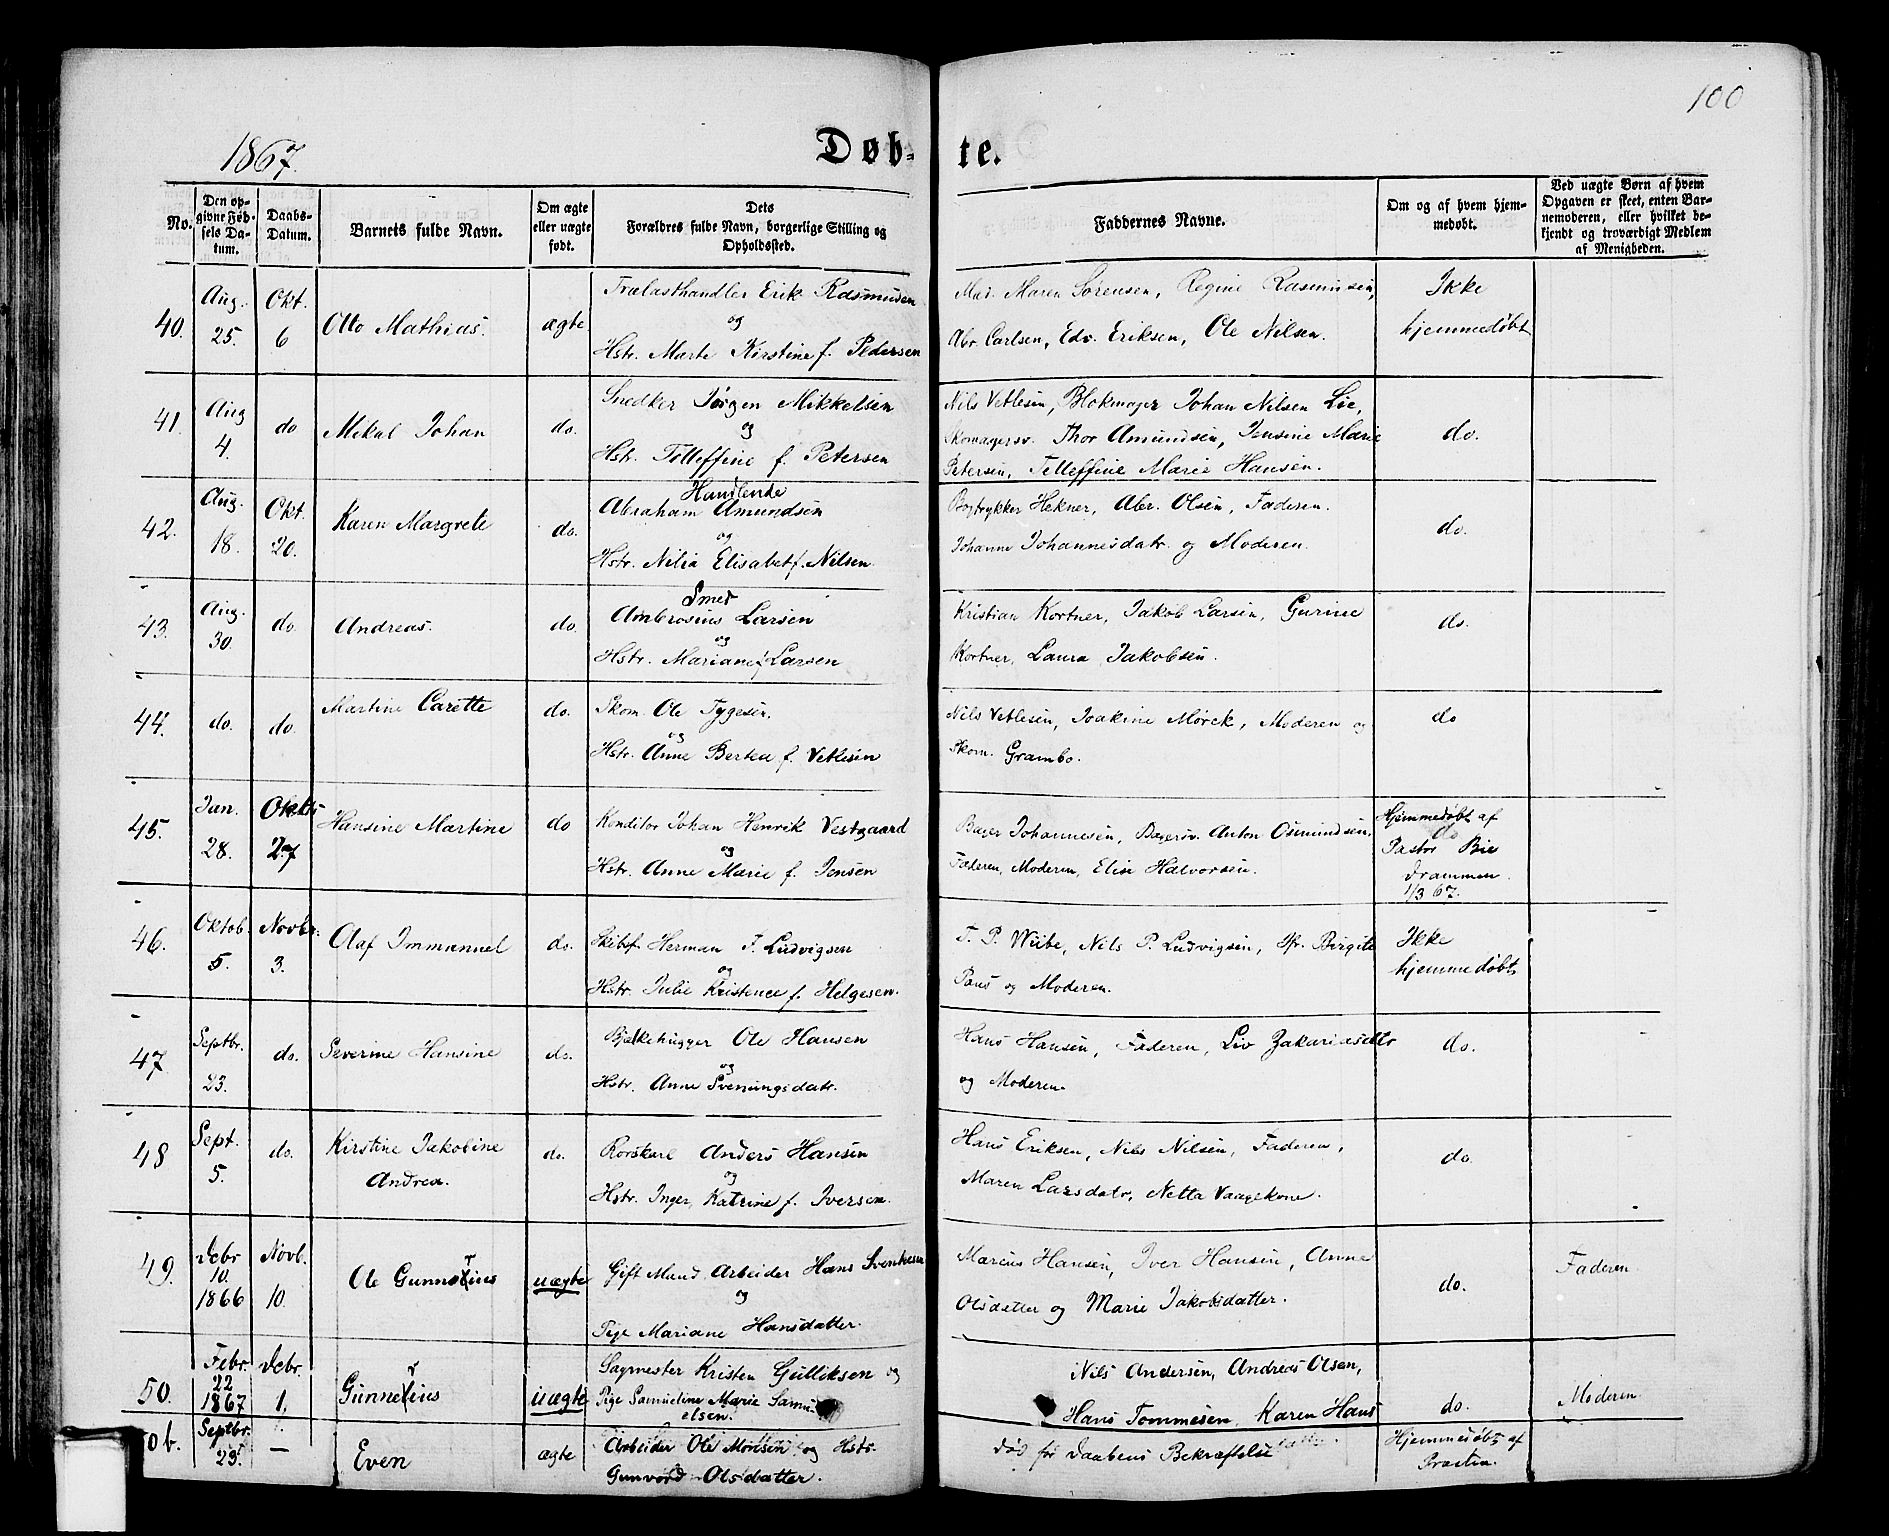 100
1867.
Døb-te.
No.
Den op-
givne Fød-
sels Da-
tum.
Daabs-
Datum.
Barnets fulde Navn.
Om ægte
eller uægte
født.
Dets
Forældres fulde Navn, borgerlige Stilling og
Opholdssted.
Faddernes Navne.
Om og af hvem hjem-
medøbt.
Ved uægte Børn af hvem
Opgaven er skeet, enten Bar-
nemoderen, eller hvilket be-
kjendt og troværdigt Medlem
af Menigheden.
40.
Aug.
25.
Okt.
6
Otto Mathias.
ægte
Trælasthandler Erik Rasmusen
og
Hstr. Marte Kirstine f. Pedersen
Mad. Maren Sørensen, Regine Rasmusen,
Abr. Carlsen, Edv. Eriksen, Ole Nilsen.
Ikke
hjemmedøbt
41.
Aug
4.
do
Mikal Johan
do.
Snedker Jørgen Mikkelsen
og
Hstr. Tolleffine f. Petersen
Nils Vetlesen, Blokmager Johan Nilsen Lie,
Skomagersv. Thor Amundsen, Jensine Marie
Petersen, Telleffine Marie Hansen.
do.
42.
Aug.
18.
Okt.
20.
Karen Margrete
do.
Handlende
Abraham Amundsen
og
Hstr. Nilia Elisabet f. Nilsen.
Bogtrykker Hekner, Abr. Olsen, Faderen.
Johanne Johannesdatr. og Moderen.
do.
43.
Aug.
30
do.
Andreas.
do.
Smed
Ambrosius Larsen
og
Hstr. Mariane f. Larsen
Kristian Kortner, Jakob Larsen, Gurine
Kortner, Laura Jakobsen.
do.
44.
do.
do.
Martine Carette
do.
Skom. Ole Tygesen.
og
Hstr. Anne Bertea f. Vetlesen
Nils Vetlesen, Joakine Mørck, Moderen og
Skom. Grambo.
do
45.
Jan.
28.
Oktb
27
Hansine Martine
do
Konditor Johan Henrik Vestgaard
og
Hstr. Anne Marie f. Jensen
Bager Johannesen, Bagersv. Anton Osmundsen,
Faderen, Moderen, Elise Halvorsen.
Hjemmedøbt af
do
Pastor Bie
Drammen.
1/3 67.
46.
Oktob
5.
Novbr.
3.
Olaf Immanuel
do.
Skibsf. Herman T. Ludvigsen
og
Hstr. Julie Kristence f. Helgesen.
T. P. Wiibe, Nils P. Ludvigsen, Fr. Birgite
Paus og Moderen.
Ikke
hjemmedøbt
47
Septbr.
23.
do.
Severine Hansine
do.
Bjelkehugger Ole Hansen
og
Hstr. Anne Sveningsdatr.
Hans Hansen, Faderen, Liv Zakariasdtr
og Moderen.
do.
48
Sept.
5.
do.
Kirstine Jakobine
Andrea.
do.
Rorskarl Anders Hansen
og
Hstr. Inger Katrine f. Iversen.
Hans Eriksen, Nils Nilsen, Faderen,
Maren Larsdatr, Netta Vaagekone.
do.
49.
Debr
10.
1866
Novb.
10.
Ole Gunnerius
uægte
Gift Mand, Arbeider Hans Svenkesen
og
Pige Mariane Hansdatter.
Marcus Hansen, Iver Hansen, Anne
Olsdatter og Marie Jakobsdatter.
do.
Faderen
50.
Febr.
22
1867
Debr.
1.
Gunnerius
uægte
Sagmester Kristen Gulliksen og
Pige Samueline Marie Samu-
elsen.
Nils Andersen, Andreas Olsen,
Hans Tommesen, Karen Hans
do.
Moderen
50b.
Septbr.
29.
—
Even
ægte
Arbeider Ole Monsen og Hstr.
Gunvord Olsdatter.
død før Daabens Bekræftelse
Hjemmedøbt af
Præsten.